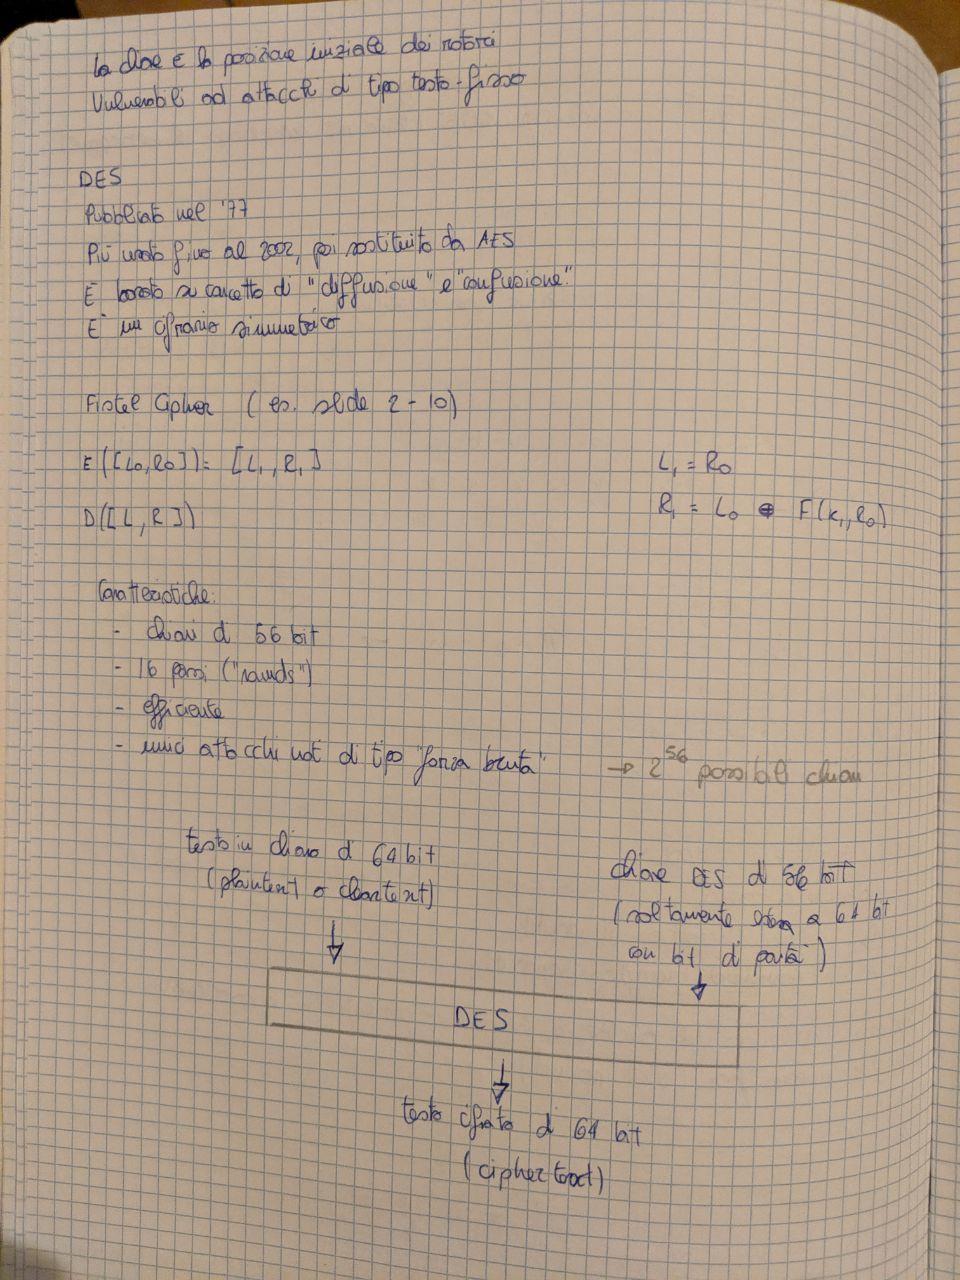 La chiave è la posizione iniziale dei rotori
Vulnerabili ad attacchi di tipo testo-fisso
DES
Pubblicato nel '77
Più usato fino al 2002, poi sostituito da AES
È basato su concetto di "diffusione" e "confusione".
È un cifrario simmetrico
Fistel Cipher (es. slide 2-10)
E([L0,R0]) = [L1,R1]
L1 = R0
D([L,R])
R1 = L0 ⊕ F(K1,R0)
Caratteristiche:
- chiavi di 56 bit
- 16 passi ("rounds")
- efficiente
- unici attacchi noti di tipo "forza bruta" → 2^56 possibili chiavi
testo in chiaro di 64 bit
(plaintext o cleartext)
chiave DES di 56 bit
(solitamente a 64 bit
con bit di parità)
DES
testo cifrato di 64 bit
(ciphertext)